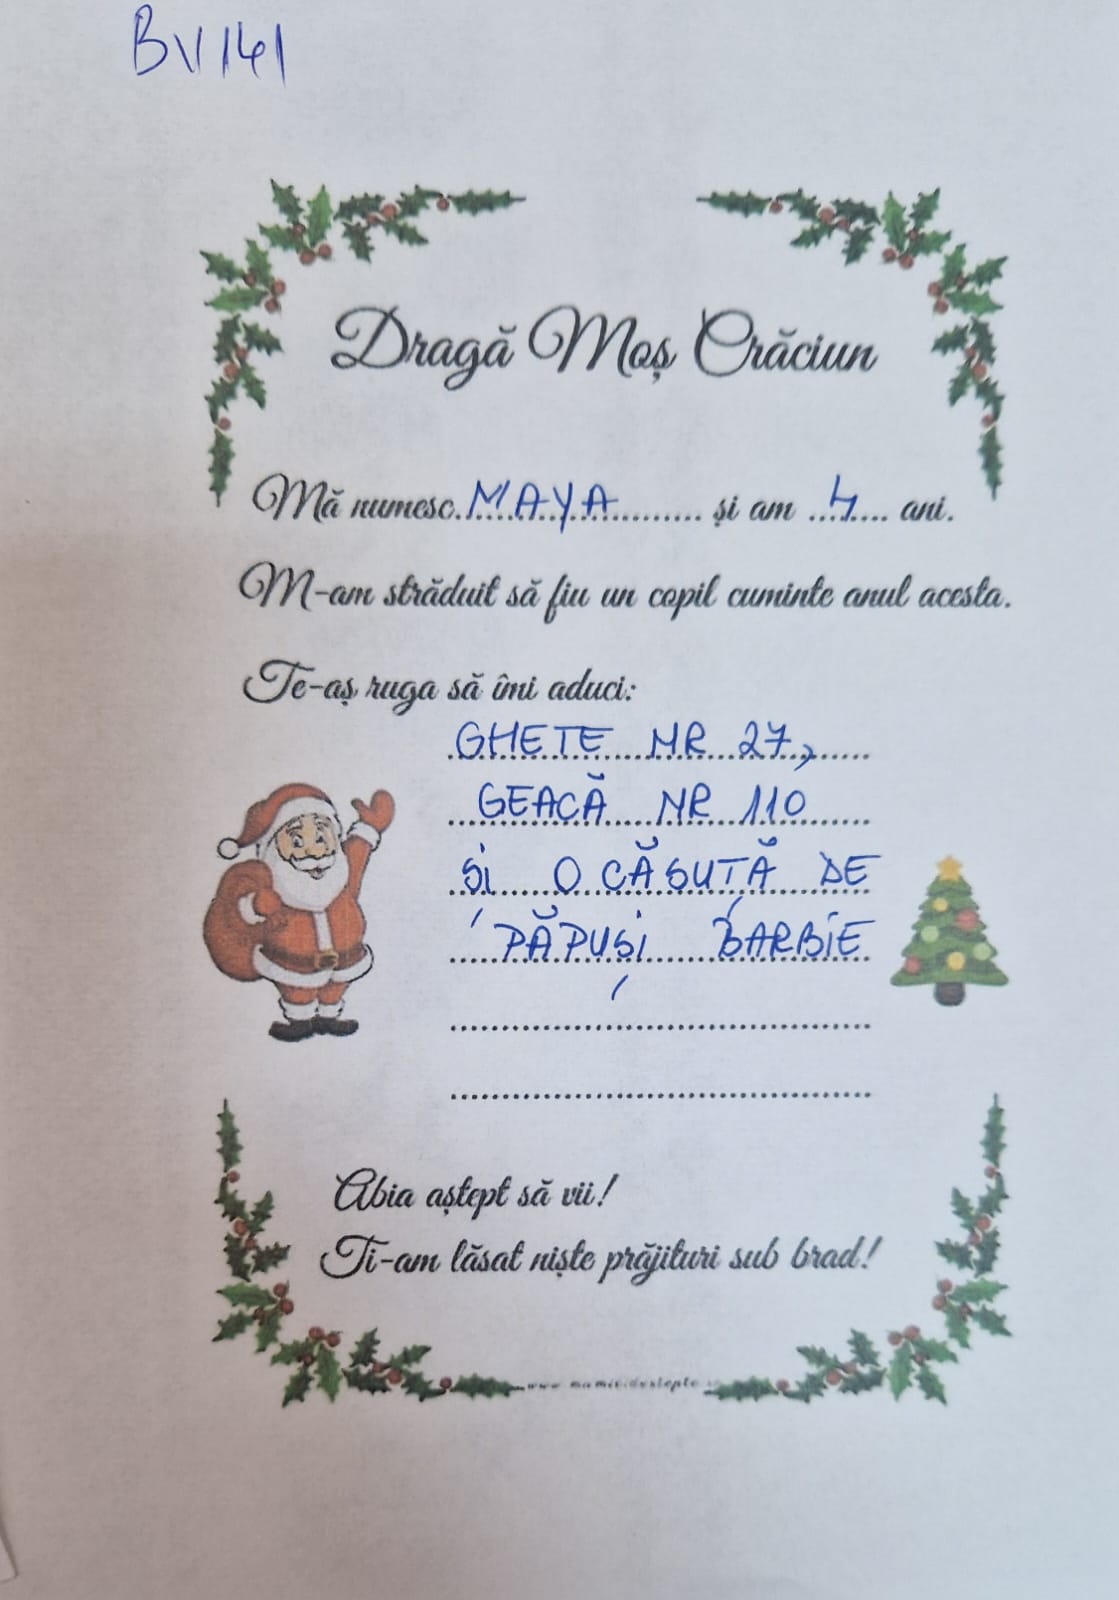 BV141
Dragă Moș Crăciun
Mă numesc.MAYA.......... și am ...4.... ani.
M-am străduit să fiu un copil cuminte anul acesta.
Te-aș ruga să îmi aduci:
GHETE NR 27,
GEACĂ NR 110
și O CĂSUȚĂ DE
PĂPUȘi BARBiE
Abia aștept să vii!
Ti-am lăsat niște prăjituri sub brad!